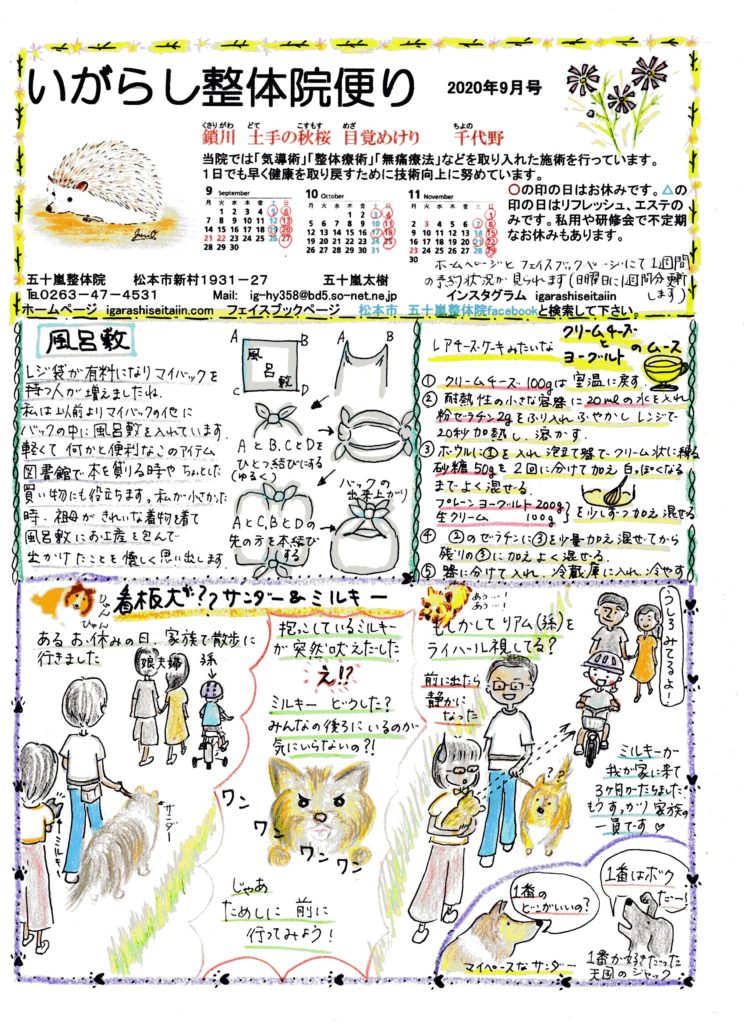 いがらし整体院便り
2020年9月号
くさりがわ どて こすもす めざ ちよの
鎖川 土手の秋桜 目覚めけり 千代野
当院では「気導術」「整体療術」「無痛療法」などを取り入れた施術を行っています。
1日でも早く健康を取り戻すために技術向上に努めています。
9 September
月 火 水 木 金 土 日
1 2 3 4 5 6
7 8 9 10 11 12 13
14 15 16 17 18 19 20
21 22 23 24 25 26 27
28 29 30
10 October
月 火 水 木 金 土 日
1 2 3 4
5 6 7 8 9 10 11
12 13 14 15 16 17 18
19 20 21 22 23 24 25
26 27 28 29 30 31
11 November
月 火 水 木 金 土 日
1
2 3 4 5 6 7 8
9 10 11 12 13 14 15
16 17 18 19 20 21 22
23 24 25 26 27 28 29
30
○の印の日はお休みです。△の
印の日はリフレッシュ、エステの
みです。私用や研修会で不定期
なお休みもあります。
ホームページとフェイスブックページにて1週間
の予約状況が見られます(日曜日に1週間分更新
します)
五十嵐整体院 松本市新村1931－27 五十嵐太樹
℡0263－47－4531 Mail: ig-hy358@bd5.so-net.ne.jp インスタグラム igarashiseitaiin
ホームページ igarashiseitaiin.com フェイスブックページ 松本市 五十嵐整体院facebookと検索して下さい。
風呂敷
レジ袋が有料になりマイバックを
持つ人が増えましたね.
私は以前よりマイバックの他に
バックの中に風呂敷を入れています.
軽くて何かと便利なこのアイテム
図書館で本を借りる時やちょっとした
買い物にも役立ちます。私が小さかった
時、祖母がきれいな着物を着て
風呂敷にお土産を包んで
出かけたことを懐しく思い出します.
A B
風呂敷
C D
A B
AとB、CとDを
ひとつ結びにする
(ゆるく)
AとC、BとDの
先の方を本結び
する
バックの
出来上がり
レアチーズケーキみたいな クリームチーズとヨーグルトのムース
① クリームチーズ 100gは 室温に戻す.
② 耐熱性の小さな容器に20mlの水を入れ
粉ゼラチン2gをふり入れふやかしレンジで
20秒加熱し、溶かす.
③ ボウルに①を入れ 泡立て器でクリーム状に練る
砂糖 50gを2回に分けて加え 白っぽくなる
までよく混ぜる.
プレーンヨーグルト 200g
生クリーム 100g }を少しずつ加え混ぜる
④ ②のゼラチンに③を少量加え混ぜてから
残りの③に加えよく混ぜる.
⑤ 器に分けて入れ、冷蔵庫に入れ冷やす
ひゃん ひゃん
看板犬!?? サンダー & ミルキー
ある お休みの日、家族で散歩に
行きました
娘夫婦
孫
サンダー
ミルキー
抱っこしているミルキー
が突然吠えだした
え!?
ミルキー どうした?
みんなの後ろにいるのが
気にいらないの?!
ワン
ワン
ワン
ワン
じゃあ
ためしに 前に
行ってみよう!
あぅ…!
あぅ…!
もしかして リアム(孫)を
ライバル視してる?
前に出たら
静かに
なった
うしろみてるよ!
??
ミルキーが
我が家に来て
3ヶ月がたちました
もうすっかり 家族の
一員です♡
1番の
どこがいいの?
マイペースなサンダー
1番はボク
だー!
1番が好きだった
天国のジャック